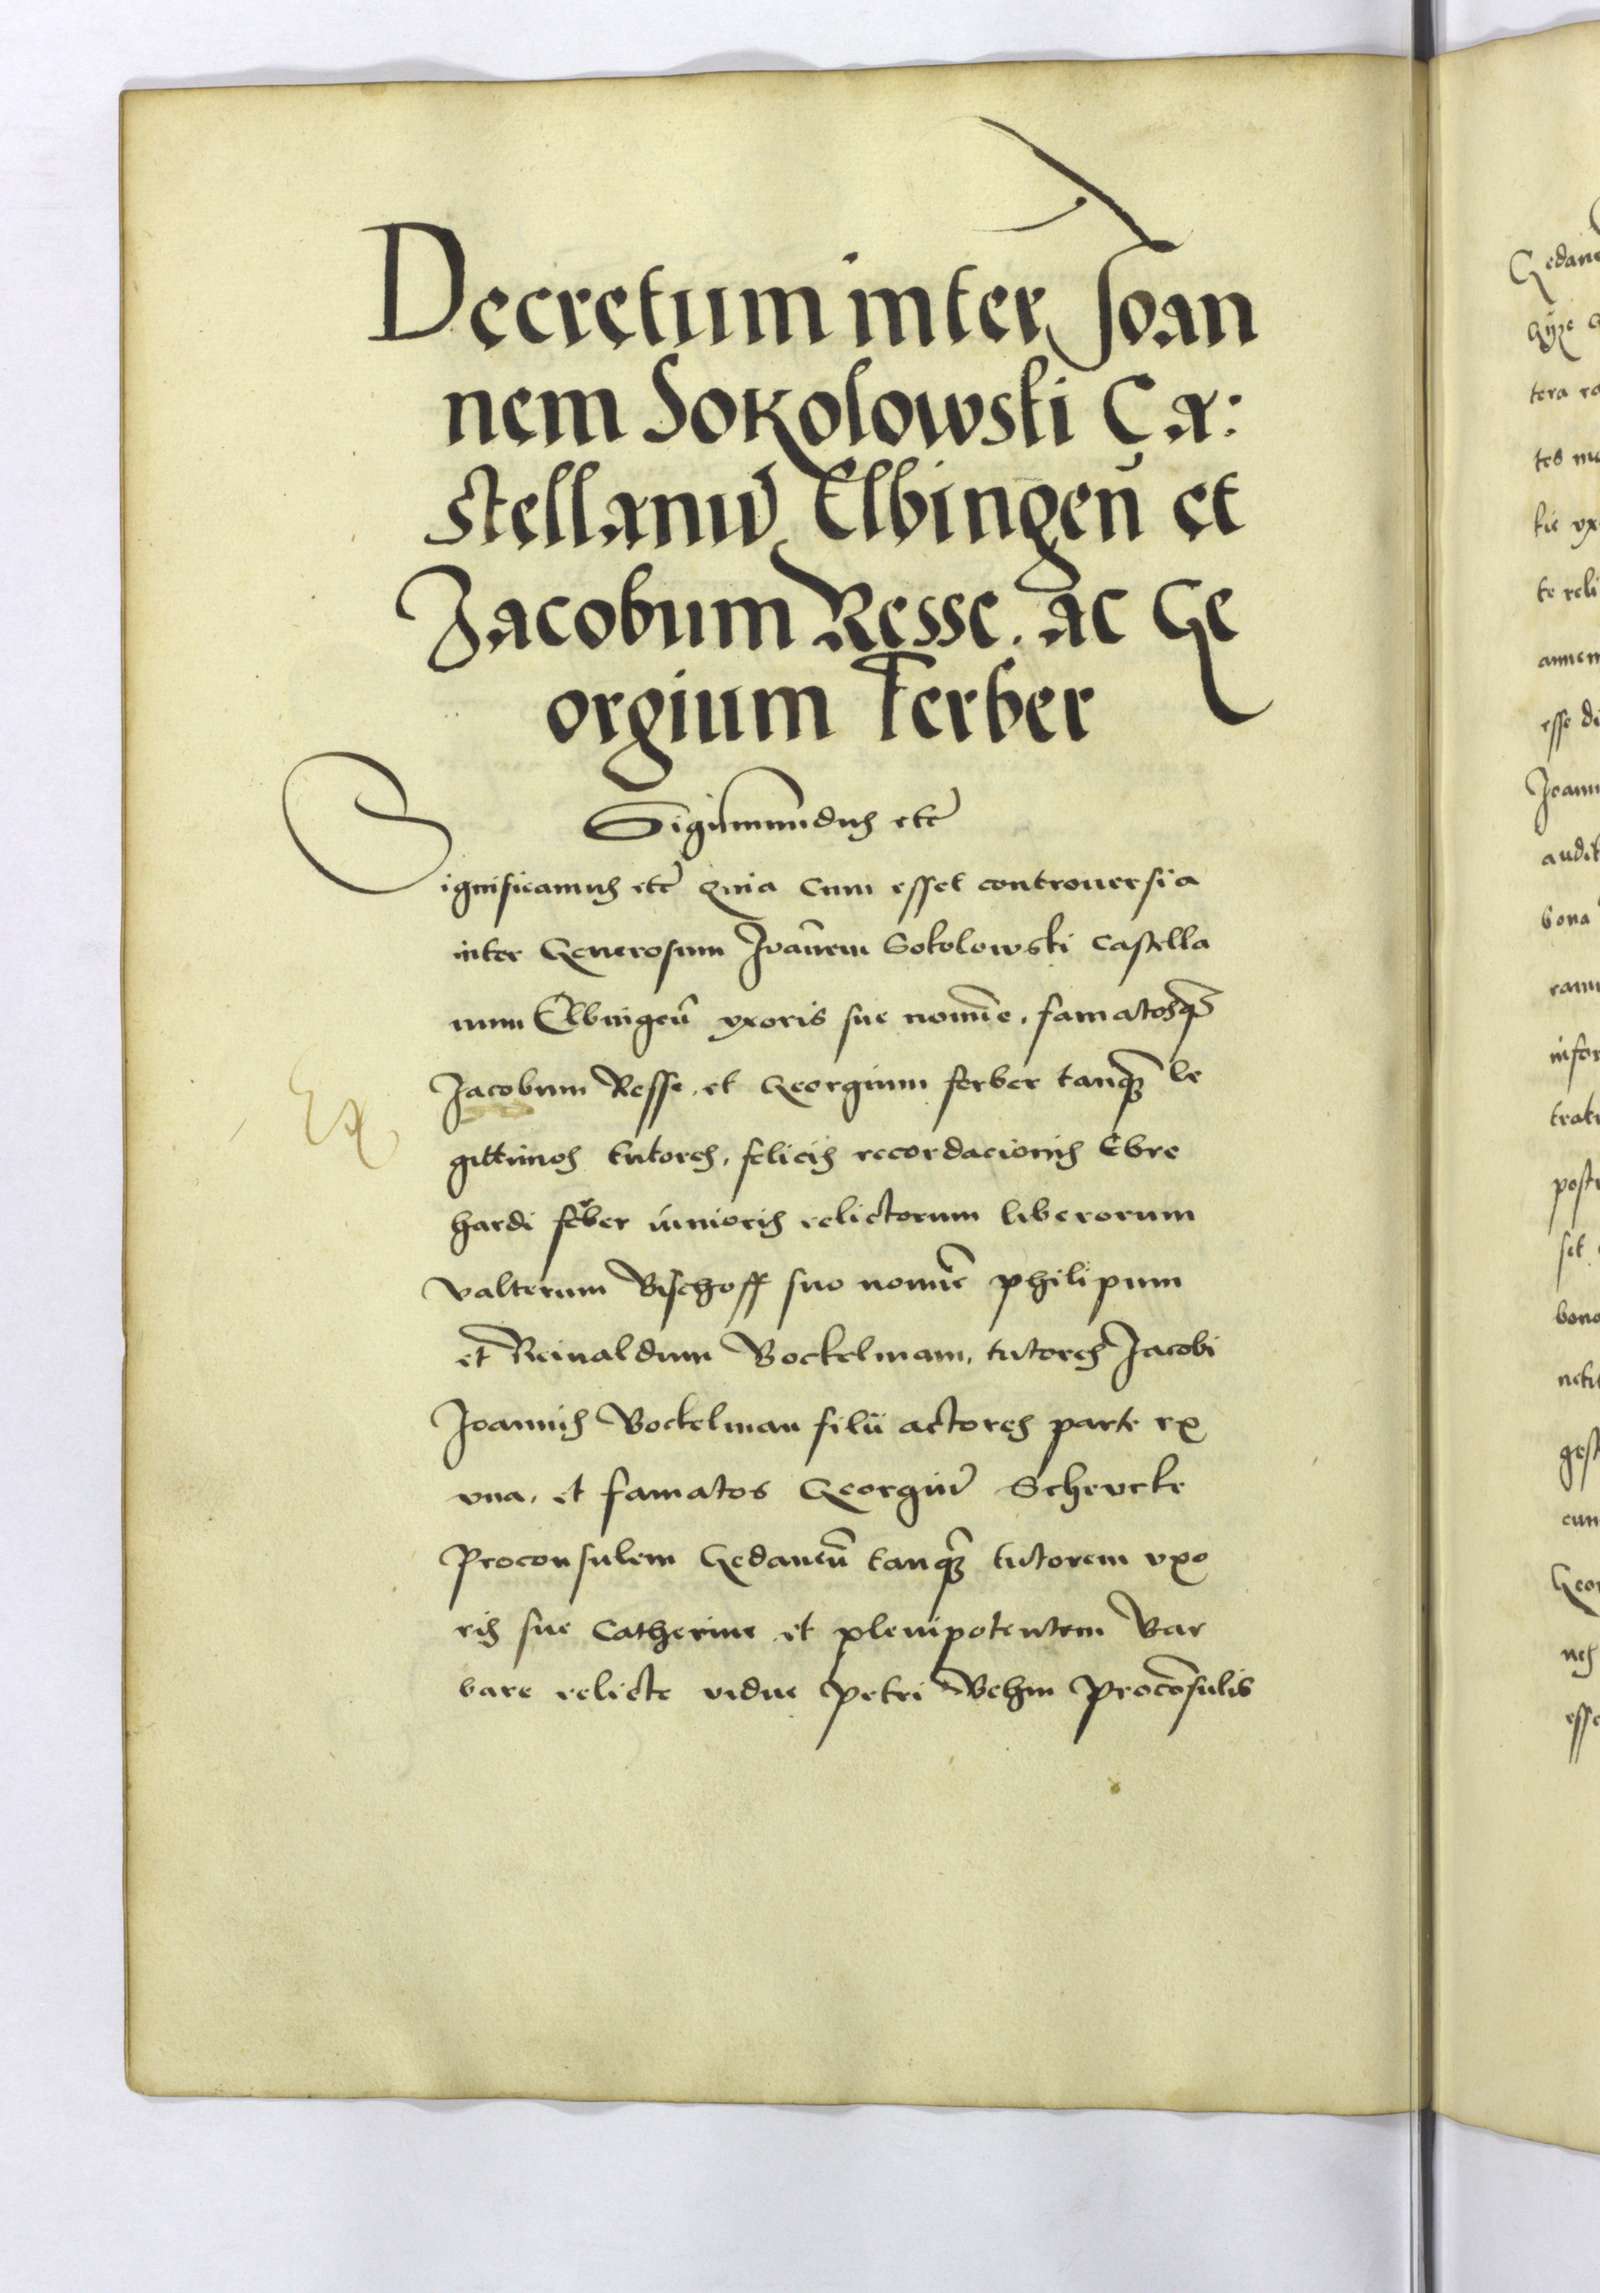 Decretum inter Joan
nem Sokolowski Ca:
stellanū Elbingeñ et
Jacobum Resse. ac Ge
orgium Ferber
Sigismundus etc̃
Significamus etc̃ quia cum esset controuersia
inter Generosum Joañem Sokolowski Castella
num Elbingeñ vxoris sue nomĩe, famatosq̃
Jacobum Resse, et Georgium ferber tanq̃ le
gittimos tutores, felicis recordacionis Ebre
hardi feber iunioris relictorum liberorum
Valterum Bischoff suo nomĩe philipum
et Reinaldum Bockelmam, tutores Jacobi
Joannis Bockelman filii actores parte ex
vna, et famatos Georgiũ Schevcke
Proconsulem Gedaneñ tanq̃ tutorem vxo
ris sue Catherine et plenipotentem Bar
bare relicte vidue Petri Behm Procõsulis
Ex